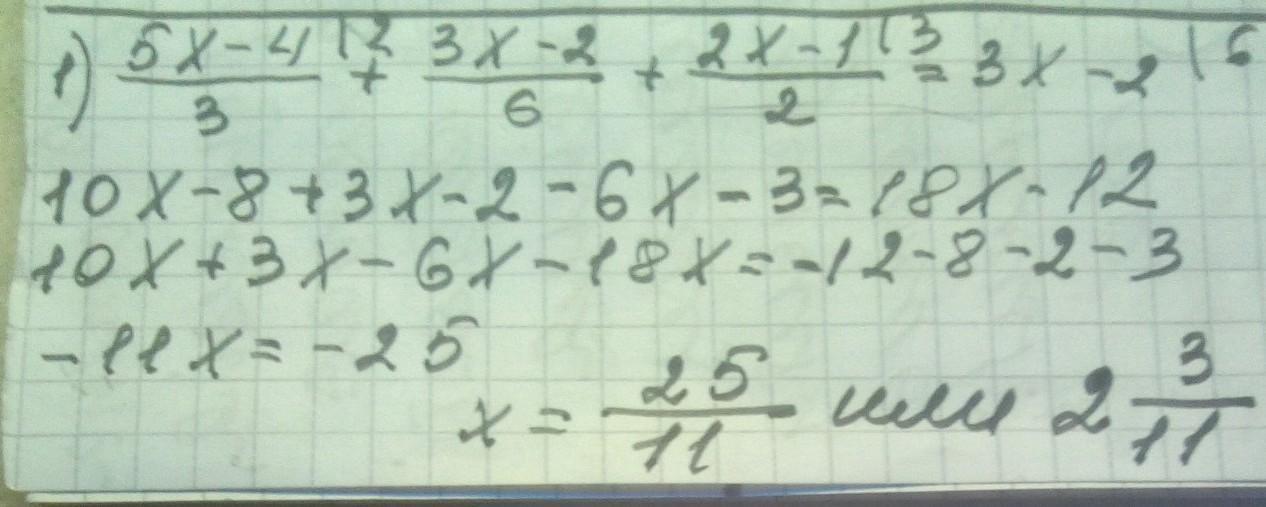 1) (5x-4)/3 |2 + (3x-2)/6 + (2x-1)/2 |3 = 3x-2 |6
10x-8+3x-2-6x-3=18x-12
10x+3x-6x-18x=-12-8-2-3
-11x=-25
x=25/11 или 2 3/11